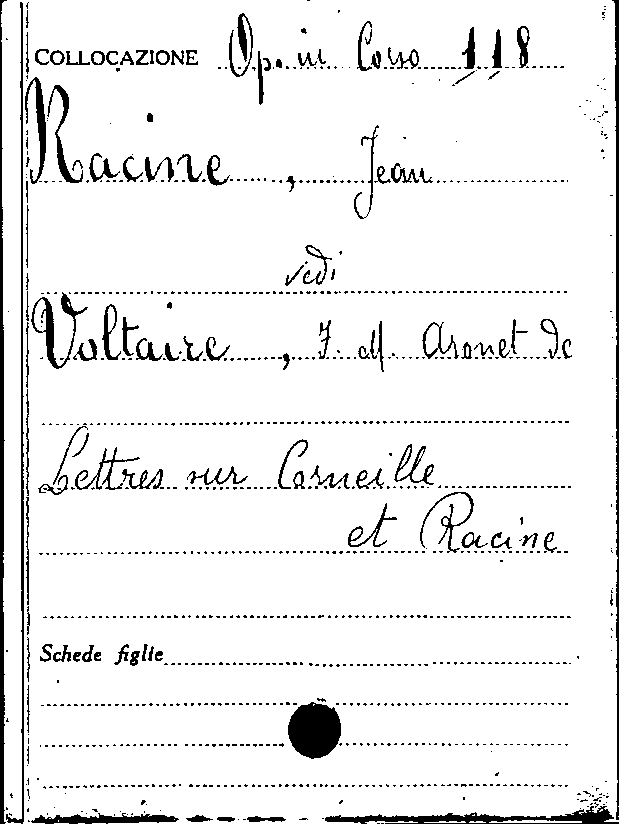 COLLOCAZIONE Op. in Corso 118
Racine, Jean
vedi
Voltaire, F. M. Aronet de
Lettres sur Corneille
et Racine
Schede figlie